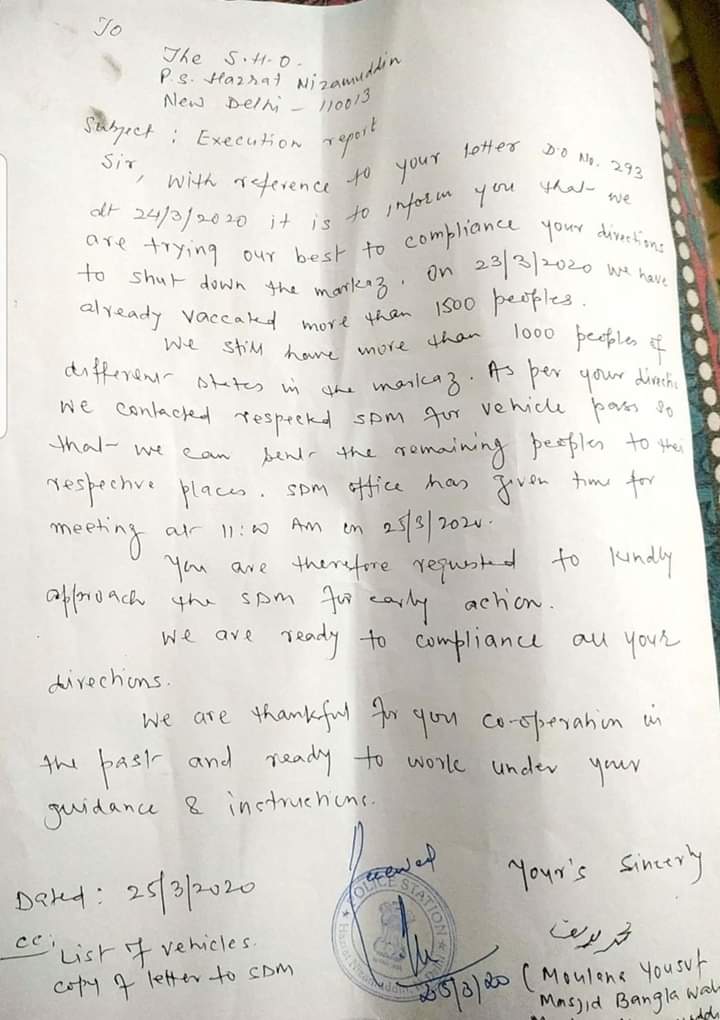 To
The S.H.O.
P.S. Hazrat Nizamuddin
New Delhi - 110013
Subject : Execution report
Sir,
With reference to your letter D.O No. 293
dt 24/3/2020 it is to inform you that we
are trying our best to compliance your directions
to shut down the markaz. On 23/3/2020 we have
already vaccated more than 1500 peoples.
We still have more than 1000 peoples of
different states in the markaz. As per your directi
we contacted respected SDM for vehicle pass so
that we can sent the remaining peoples to thei
respective places. SDM office has given time for
meeting at 11:00 AM on 25/3/2020.
You are therefore requested to kindly
approach the SDM for early action.
We are ready to compliance all your
directions.
We are thankful for you co-operation in
the past and ready to work under your
guidance & instructions.
Received
Your's Sincerly
Dated : 25/3/2020
POLICE STATION
Hazrat Nizamuddin
محمد یوسف
25/3/20
cc: List of vehicles.
copy of letter to SDM
(Moulana Yousuf
Masjid Bangla wal